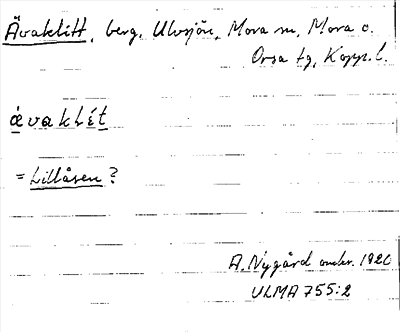 Ävaklitt, berg, Ulvsjön, Mora sn, Mora o.
Orsa tg, Kopp. l.
ä́vaklít
= Lillåsen?
A. Nygård omkr. 1920
ULMA 755:2